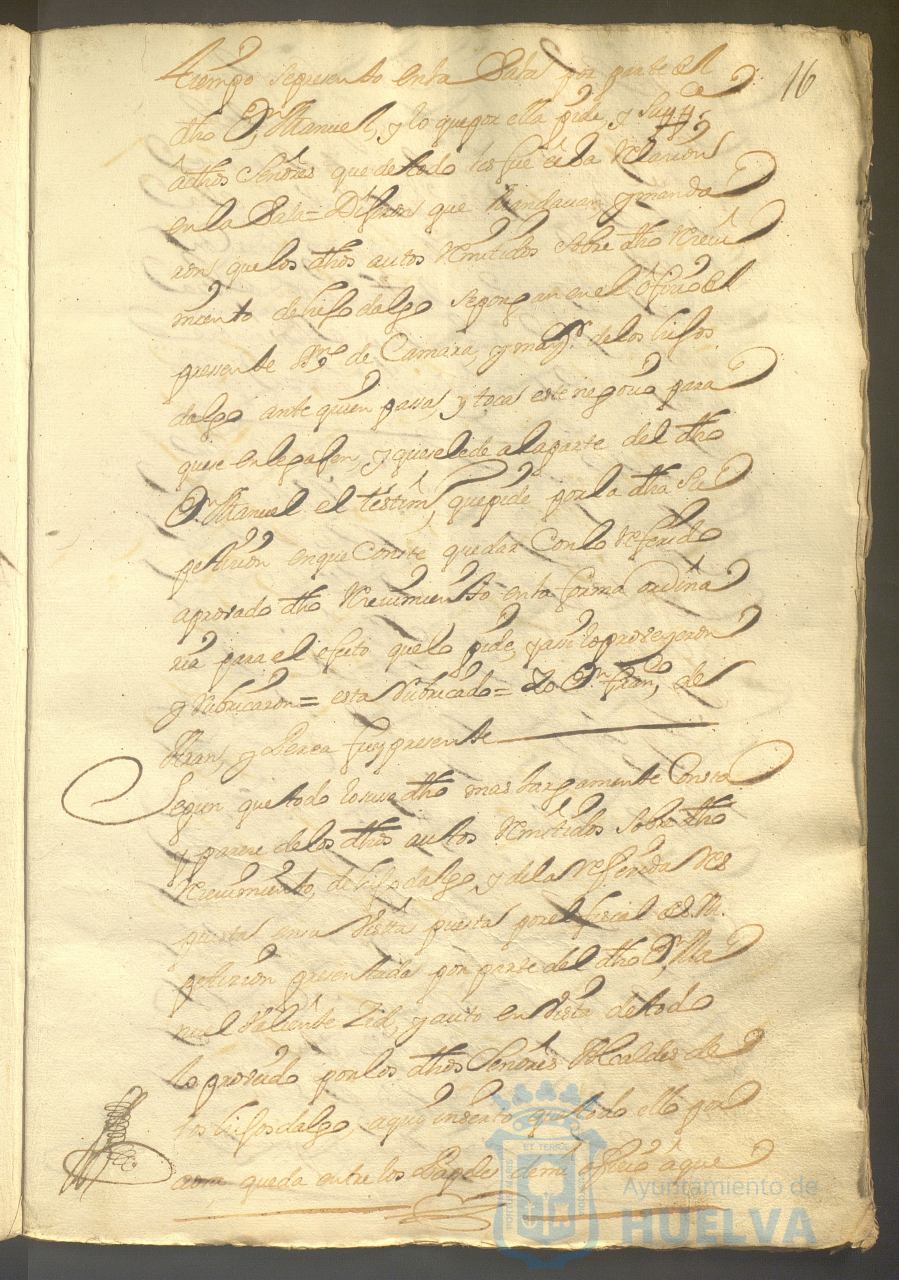 16
tiempo sepresento enla Sala por parte del
dho Dn Manuel, y lo quepor ella pide, y supp.ca
a dhos Señores que de todo les fue fecha Relazion
en la Sala = Dijeron que mandavan y manda
ron que los dhos autos Remitidos sobre dho Recivi
miento de hijo dalgo sepongan en el ofizio del
presente Ss.no de Camara, y may.r de los hijos
dalgo ante quien passa y toca este negozio para
que se enlegajen, y que sele de a la parte del dho
Dn Manuel el testim.o que pide por la dha Pe
petizion en que Conste quedar Con lo referido
aprovado dho Recivimiento en la forma ordina
ria para el efeto que lo pide, y assi lo proveyeron
y rubricaron = esta rubricado = Yo Dn Fran.co de
y Perea fuy presente
Segun que todo lo suso dho mas largamente Consta
y pareze de los dhos autos Remitidos sobre dho
Recivimiento, de hijo dalgo, y de la referida Res
puesta en su Vista puesta por el fiscal de S. M.
petizion presentada por parte del dho Dn Ma
nuel Valiente Zid, y auto en Vista de todo
lo proveido por los dhos Señores Alcaldes de
los hijos dalgo, aqui inserto, que todo ello por
aora queda entre los Papeles de mi ofizio a que
Ayuntamiento de
HUELVA